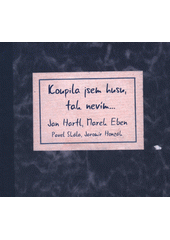 Koupila jsem husu,
tak nevím...
Jan Hartl, Marek Eben
Pavel Skála, Jaromír Hanzlík